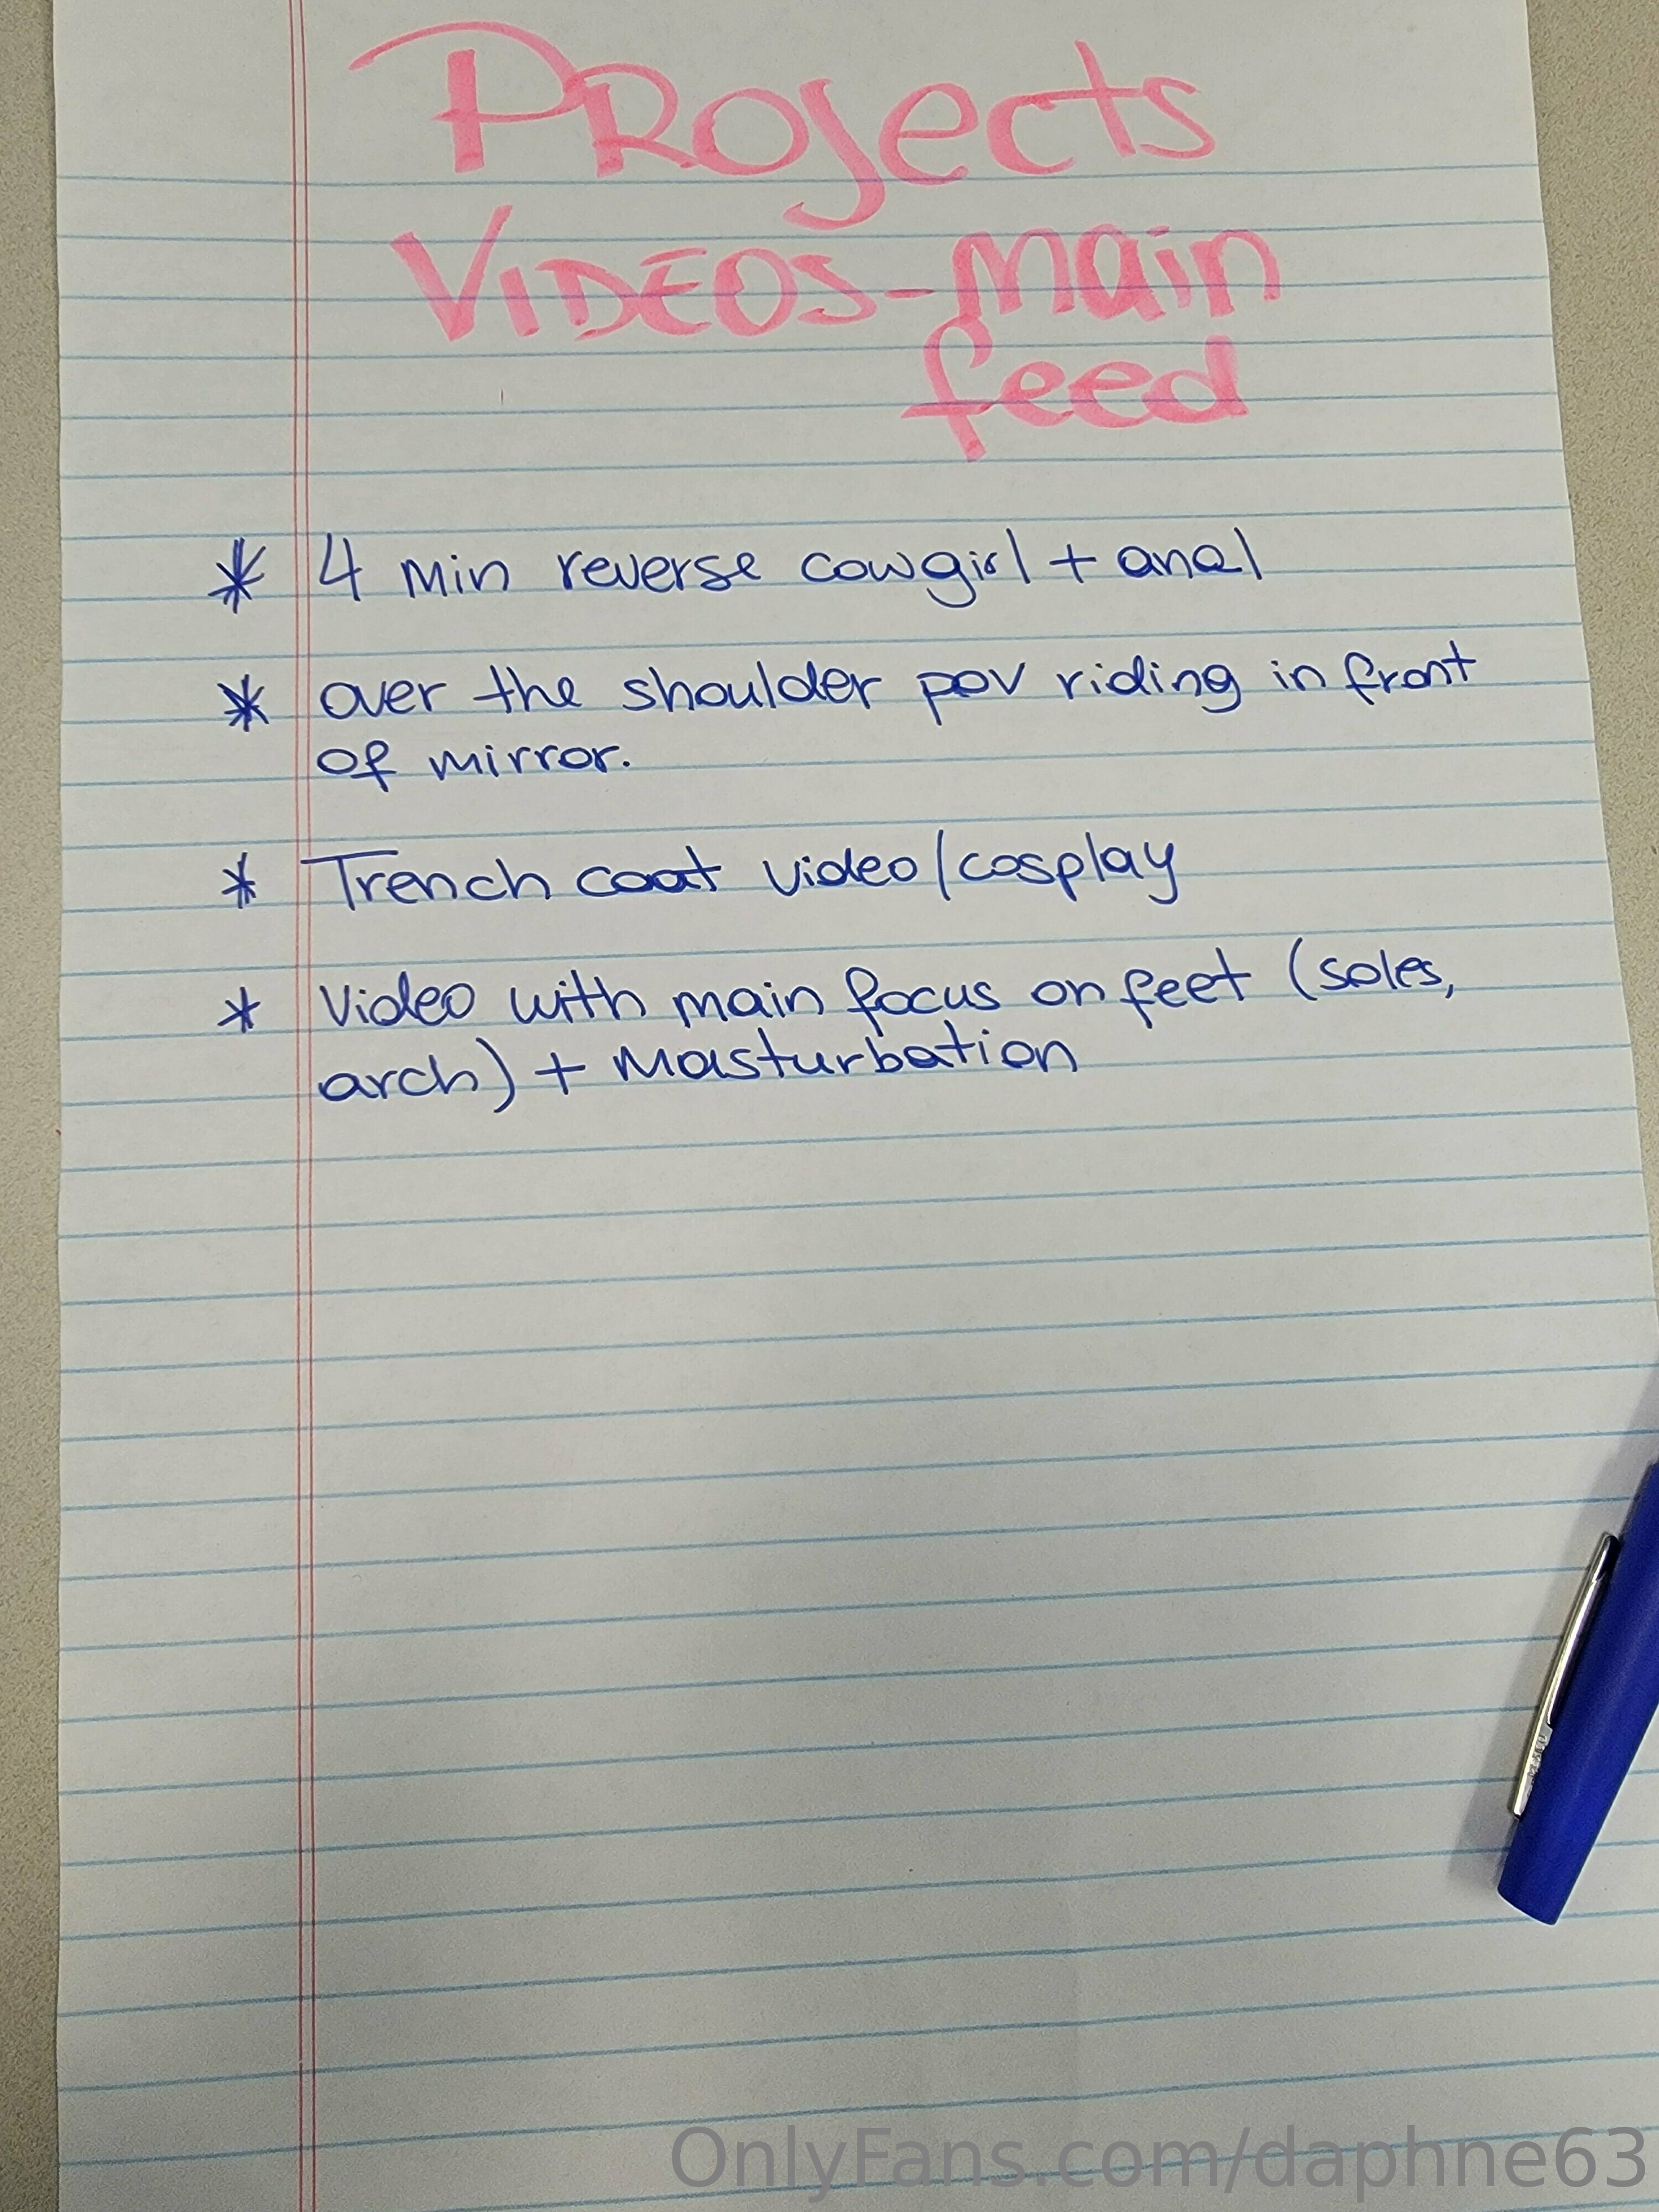 Projects
Videos-main
feed
* 4 min reverse cowgirl + anal
* over the shoulder pov riding in front
of mirror.
* Trench coat video/cosplay
* Video with main focus on feet (soles,
arch) + Masturbation
OnlyFans.com/daphne63